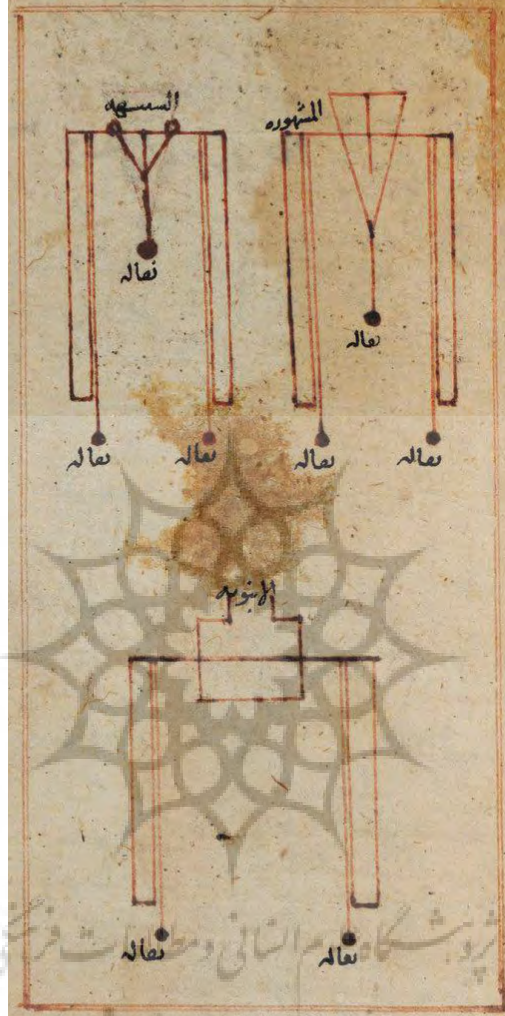 المشهوره
ثقاله
ثقاله
ثقاله
ثقاله
ثقاله
ثقاله
الانبوبه
ثقاله
ثقاله
پژوهشگاه علوم انسانی و مطالعات